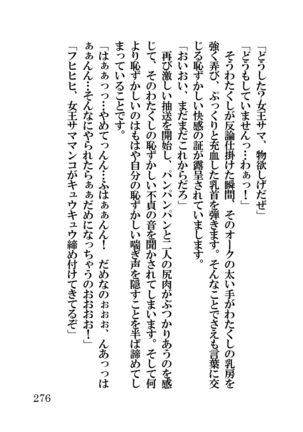 「どうした？女王サマ、物欲しげだぜ」
「どうもしていませんっ…わぁっ！」
　そうわたくしが反論仕掛けた瞬間、そのオークの太い手がわたくしの乳房を
強く弄び、ぷっくりと充血した乳首を弾きます。そんなことでさえも言葉に交
じる恥ずかしい快感の証が露呈されていまします。
「おいおい、まだまだこれからだろ」
　再び激しい抽送を開始し、パンパンパンと二人の尻肉がぶつかりあうのを感
じて、そのわたくしの恥ずかしい不貞の音を聞かされてしまいます。そして何
より恥ずかしいのはもはや自分の恥ずかしい喘ぎ声を隠すことを半ば諦めてし
まっていることです。
「はぁぁっっ…やめてっんん…ふはぁぁんん！　だめなのぉぉぉ、んあっっは
ぁぁんん…そんなにやられたらぁぁだめになっちゃうのおおおお！」
「フヒヒヒ、女王サママンコがキュウキュウ締め付けてきてるぞ」
276